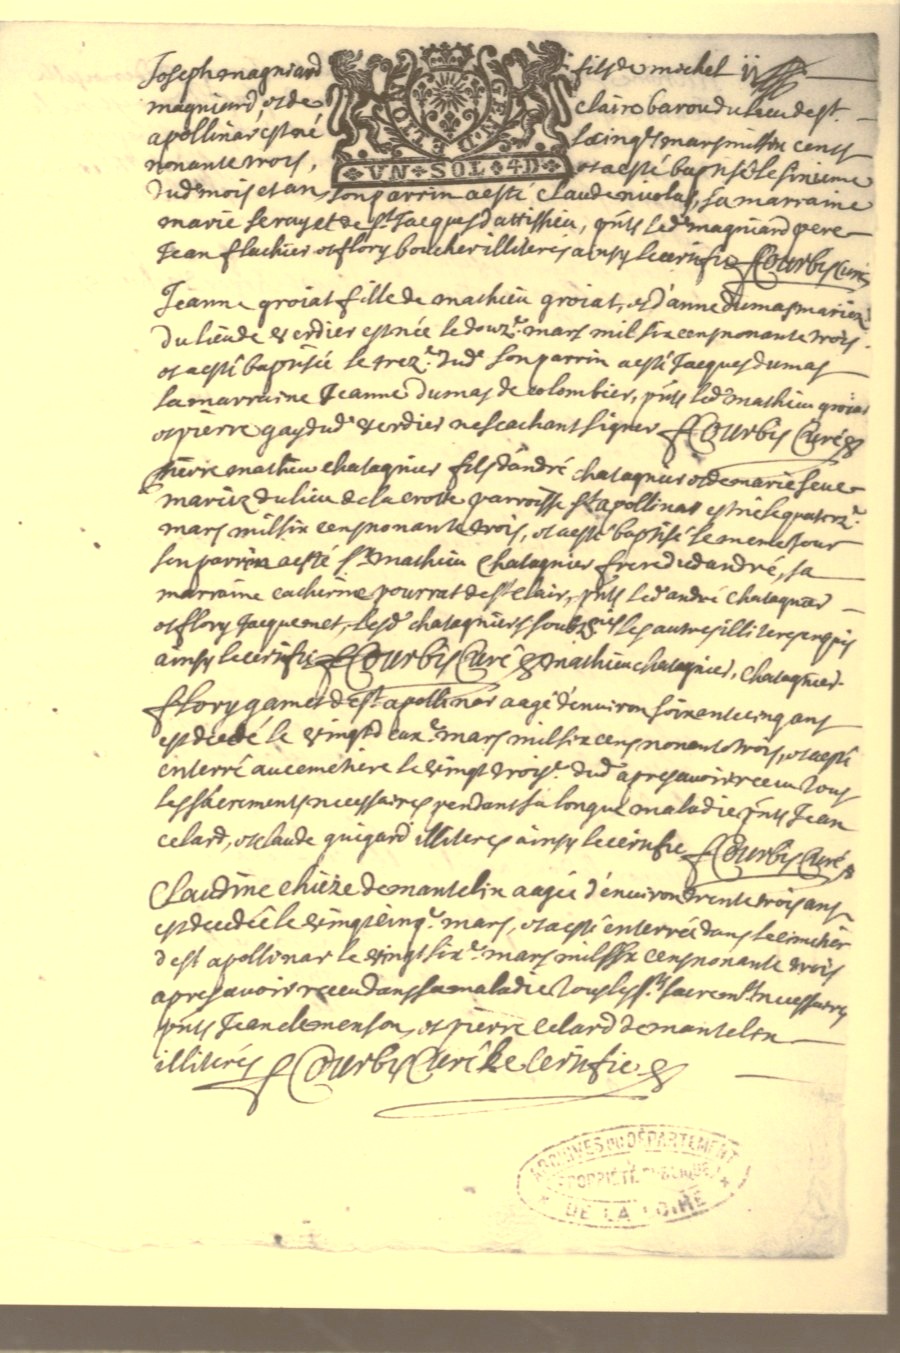 Joseph magniard fils de michel ij
magniard, et de claire barou du lieu de st.
apollinar est né le cinqe. mars mil six cents
nonante trois, et a esté baptisé le sixieme
dud. mois et an son parrin a esté claude nicolas, sa marraine
marie seruyet de st Jacques d'attissieu, pnts led. magniard pere
Jean flachier et flory boucher illiteres ainsy le certifie Courbis Curé
GE. D. LYON
UN · SOL · 4 D ·
Jeanne groiat fille de mathieu groiat, et d'anne dumas mariez
du lieu de verdier est née le douze. mars mil six cens nonante trois.
et a esté baptisée le treze. dud. son parrin a esté Jacques dumas
sa marraine Jeanne dumas de colombier, pnts led. mathieu groiat
et pierre gay dud. verdier ne scachant signer Courbis Curé
Pierre mathieu chatagnier fils d'andré chatagnier et de marie seue
mariez du lieu de la croste parroisse st apollinar est né le quatorze.
mars mil six cens nonante trois, et a esté baptisé le meme Jour
son parrin a esté sr. mathieu chatagnier frere dud andré, sa
marraine catherine pourrat de st clair, pnts led. andré chatagnier
et flory Jacquemet, lesd. chatagniers soubsnés les autres illiteres enquis
ainsy le certifie Courbis Curé mathieu chatagnier, chatagnier.
flory gamet de st. apollinar aagé d'environ soixante cinq ans
est decedé le vingt deuxe. mars mil six cens nonante trois, et a esté
enterré au cemetiere le vingt troise. dud. apres avoir receu tous
les sacrements necessaires pendant sa longue maladie pnts Jean
celard, et claude guigard illiteres ainsy le certifie Courbis Curé
Claudine chieze de mantelin aagée d'environ trente trois ans
est decedée le vingt cinqe. mars, et a esté enterrée dans le cimetier
de st apollinar le vingt sixe. mars mil six cens nonante trois
apres avoir receu dans sa maladie tous les sts. sacremts. necessaires
pnts Jean clemenson, et pierre celard de mantelin
illiterés Courbis Curé le certifie
ARCHIVES DU DÉPARTEMENT
PROPRIÉTÉ PUBLIQUE
DE LA LOIRE